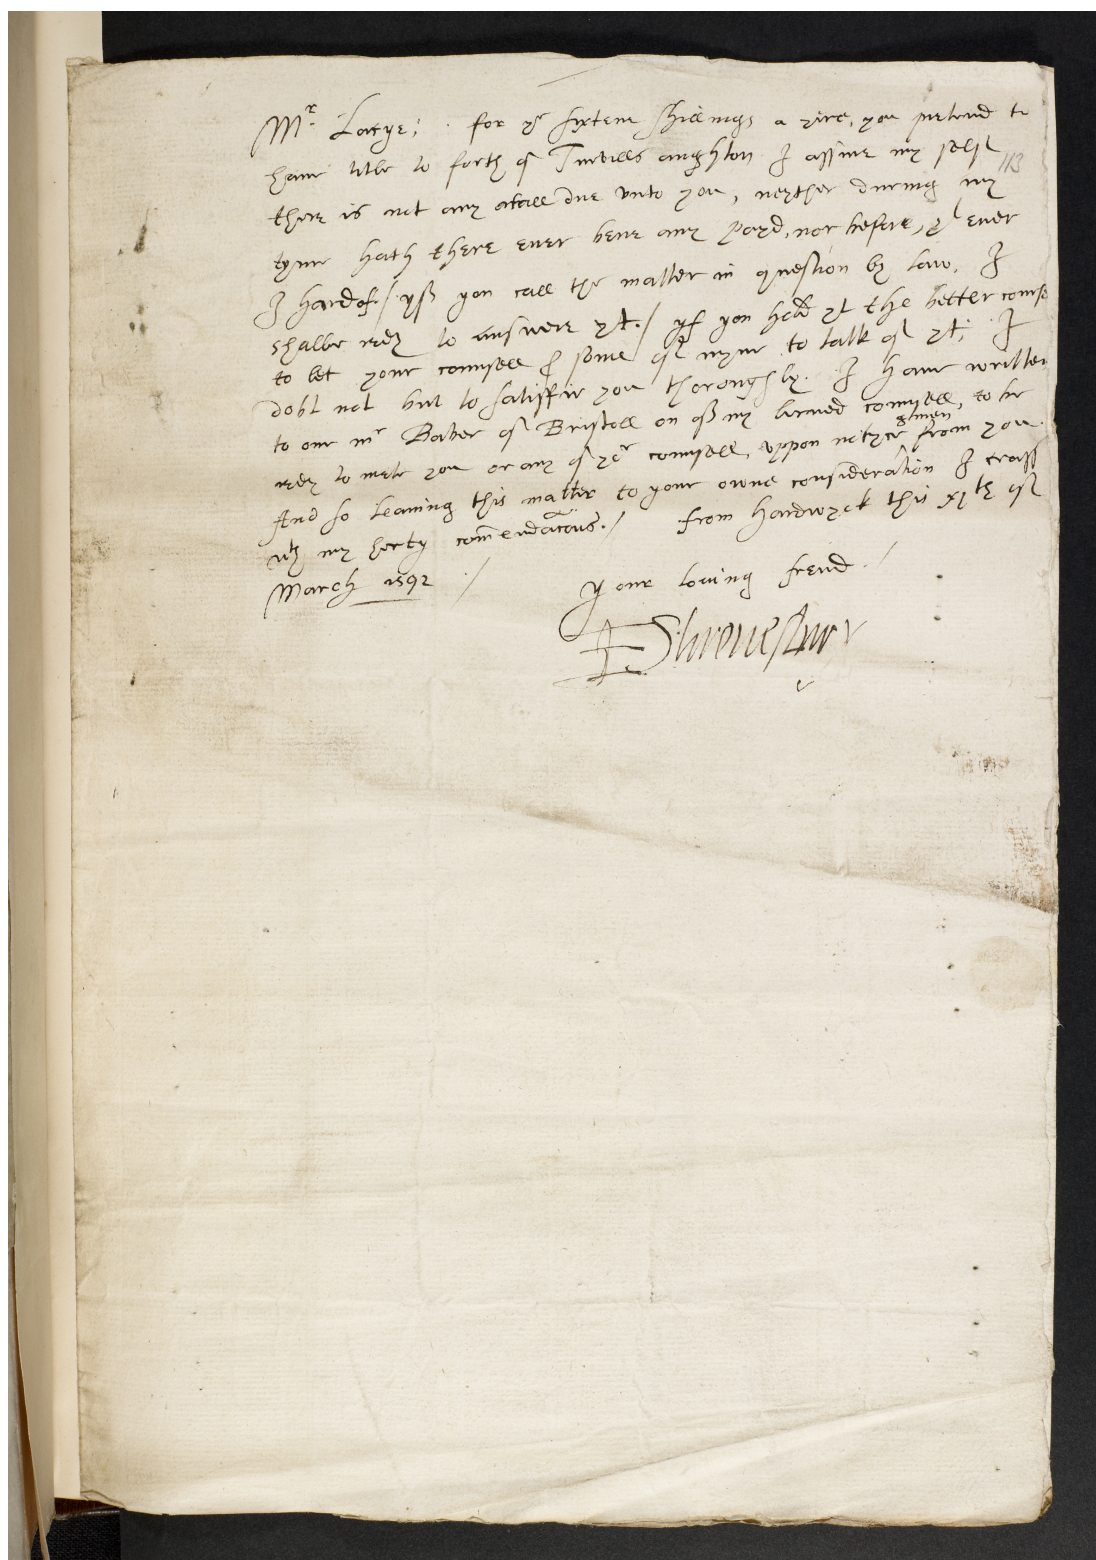 Mr. Lacye; for ye sixtene shillings a yere, you pretend to
haue title to forth of Turvills aughton I assure my self
113
there is not any atall due vnto you, neyther during my
tyme hath there ever bene any payd, nor before, yt ever
I hard of./ yf you call the matter in question by law, I
shalbe redy to answere yt./ yf you hold yt the better course
to let your counsell & some of myne to talk of yt; I
dobt not but to satisfie you thoroughly. I haue written
to one mr Baber of Bristoll on of my lerned counsell, to be
redy to mete you or any of yor counsell, vppon notyce
geuen
from you.
And so leauing this matter to your owne consideration I cease
wth my harty comendacons./ from Hardwyck this xjth of
March 1592 /
your louing frend /
EShrouesbury